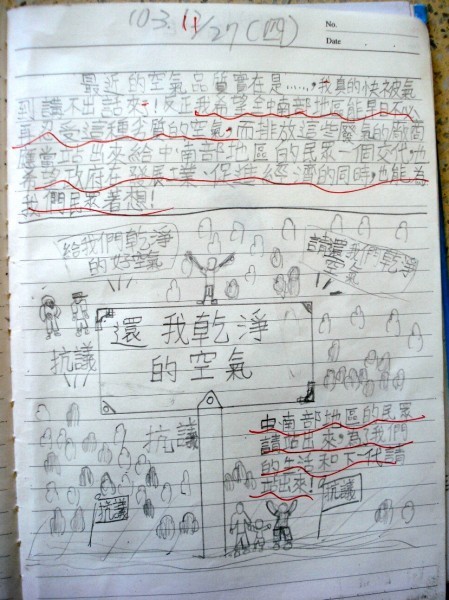 103.11/27(四)
No.
Date
最近的空氣品質實在是……,我真的快被氣
到講不出話來了!反正我希望全中南部地區能早日不必
再忍受這種的空氣,而排放這些廢氣的廠商
應當站出來給中南部地區的民眾一個交代,也
希望政府在發展工業、促進經濟的同時,也能為
我們民眾著想!
給我們乾淨
的好空氣
請還我們乾淨
空氣
還我乾淨
的空氣
抗議
抗議
中南部地區的民眾
請站出來,為了我們
的生活和下一代請
站出來!
抗議
抗議